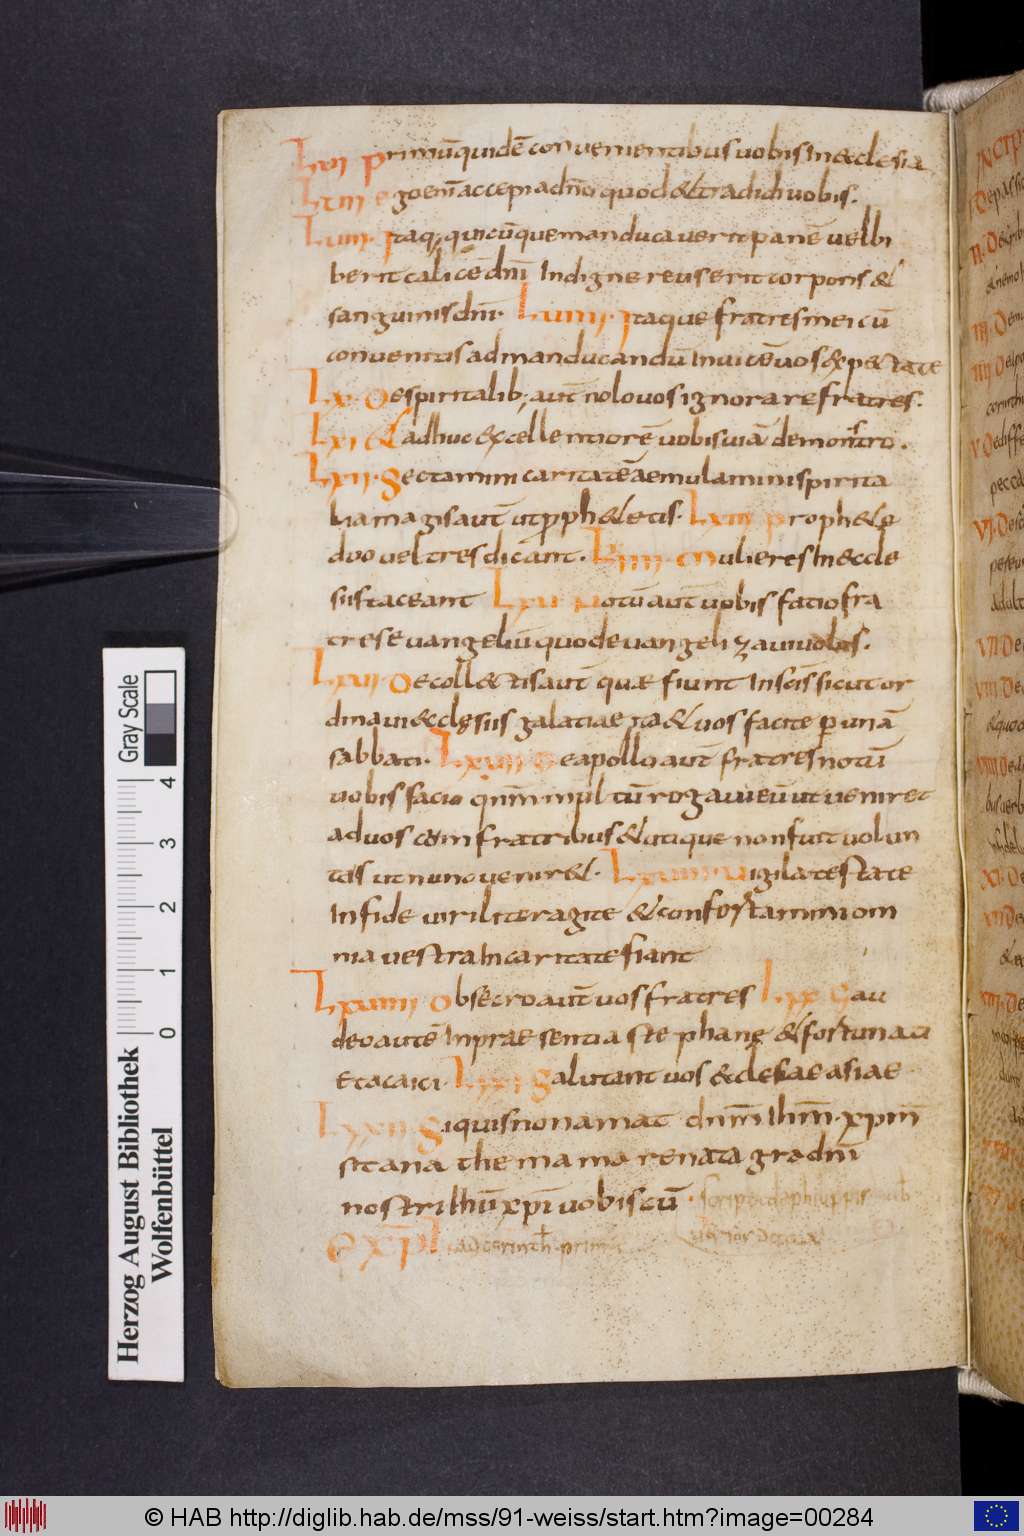 LVI Primū quidē convenientibus vobis in ecclesia
LVII Ego enī accepi a dn̄o quod & tradidi vobis.
LVIII. Itaq; quicūque manducaverit panē vel bi
berit calicē dn̄i Indigne reus erit corporis &
sanguinis dn̄i. LVIIII. Itaque fratres mei cū
convenitis ad manducandū Invicē vos expectate
LX. De spiritalib; aut̄ nolo vos ignorare fratres.
LXI & adhuc excellentiorē vobis viā demonstro.
LXII. Sectamini caritatē aemulamini spirita
lia magis aut̄ ut proph&etis. LXIII Proph&ę
duo vel tres dicant. LXIIII. Mulieres In eccle
siis taceant LXV Notū aut̄ vobis fatio fra
tres evangeliū quod evangelizavi vobis.
LXVI. De coll&tis aut̄ quae fiunt In sc̄is sicut or
dinavi ecclęsiis galatiae ita & vos facite per unā
sabbati. LXVII De apollo aut̄ fratres notū
vobis facio qnm̄ multū rogavi eū ut veniret
ad vos cum fratribus & utique non fuit volun
tas ut nunc venir&. LXVIII. Vigilate state
In fide viriliter agite & confortamini om
nia vestra In caritate fiant
LXVIIII Obsecro aut̄ vos fratres LXX Gau
deo autē In praesentia stephanę & fortunati
et acaici. LXXI Salutant vos ecclesiae asiae
LXXII. Si quis non amat dnm̄ ihm̄ xpm̄
sit anathema maranata gra dn̄i
nostri ihū xpī vobiscū. scripta de philippis
EXPL ad corinth. prima
Herzog August Bibliothek
Wolfenbüttel
Gray Scale
0 1 2 3 4
© HAB http://diglib.hab.de/mss/91-weiss/start.htm?image=00284